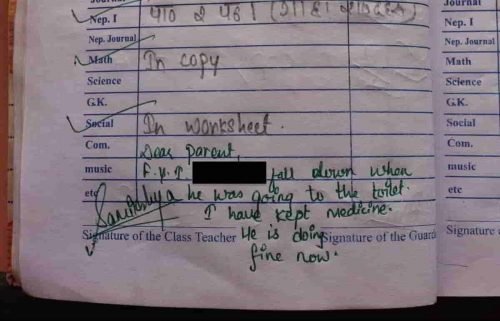 Journal Journal
Nep. I पाठ २ पढ । Nep. I
Nep. Journal Nep. Journal
Math In copy Math
Science Science
G.K. G.K.
Social In worksheet. Social
Com. Dear Parent, Com.
music F.Y.I fall down when music
etc he was going to the toilet. etc
I have kept medicine.
Signature of the Class Teacher He is doing Signature of the Guard Signature
fine now.